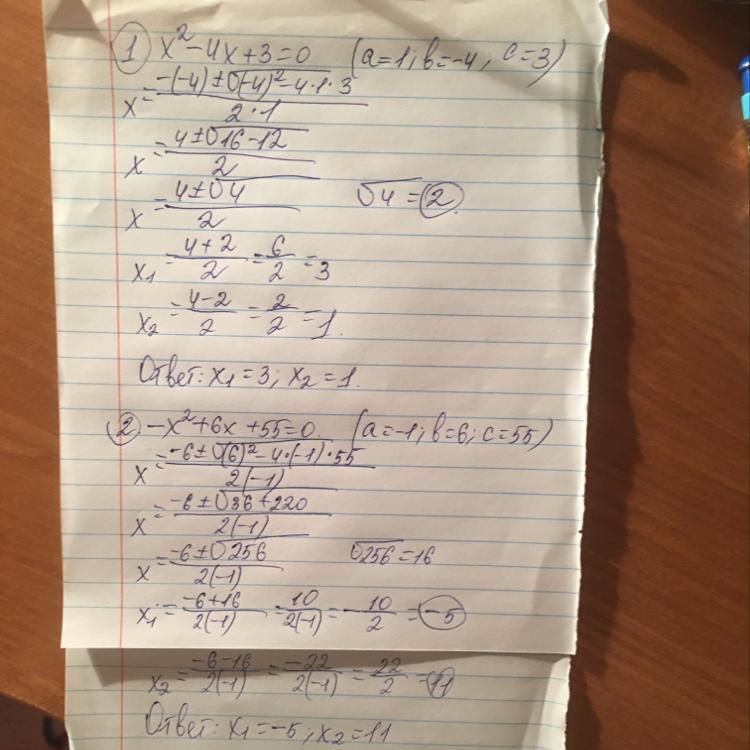 1) x²-4x+3=0 (a=1; b=-4; c=3)
x = (-(-4) ± √(-4)²-4·1·3) / (2·1)
x = (4 ± √16-12) / 2
x = (4 ± √4) / 2 √4 = 2
x₁ = (4+2) / 2 = 6/2 = 3
x₂ = (4-2) / 2 = 2/2 = 1.
Ответ: x₁=3; x₂=1.
2) -x²+6x+55=0. (a=-1; b=6; c=55)
x = (-6 ± √(6)²-4·(-1)·55) / 2(-1)
x = (-6 ± √36+220) / 2(-1)
x = (-6 ± √256) / 2(-1) √256 = 16
x₁ = (-6+16) / 2(-1) = 10 / 2(-1) = -10/2 = -5
x₂ = (-6-16) / 2(-1) = -22 / 2(-1) = 22/2 = 11
Ответ: x₁=-5; x₂=11